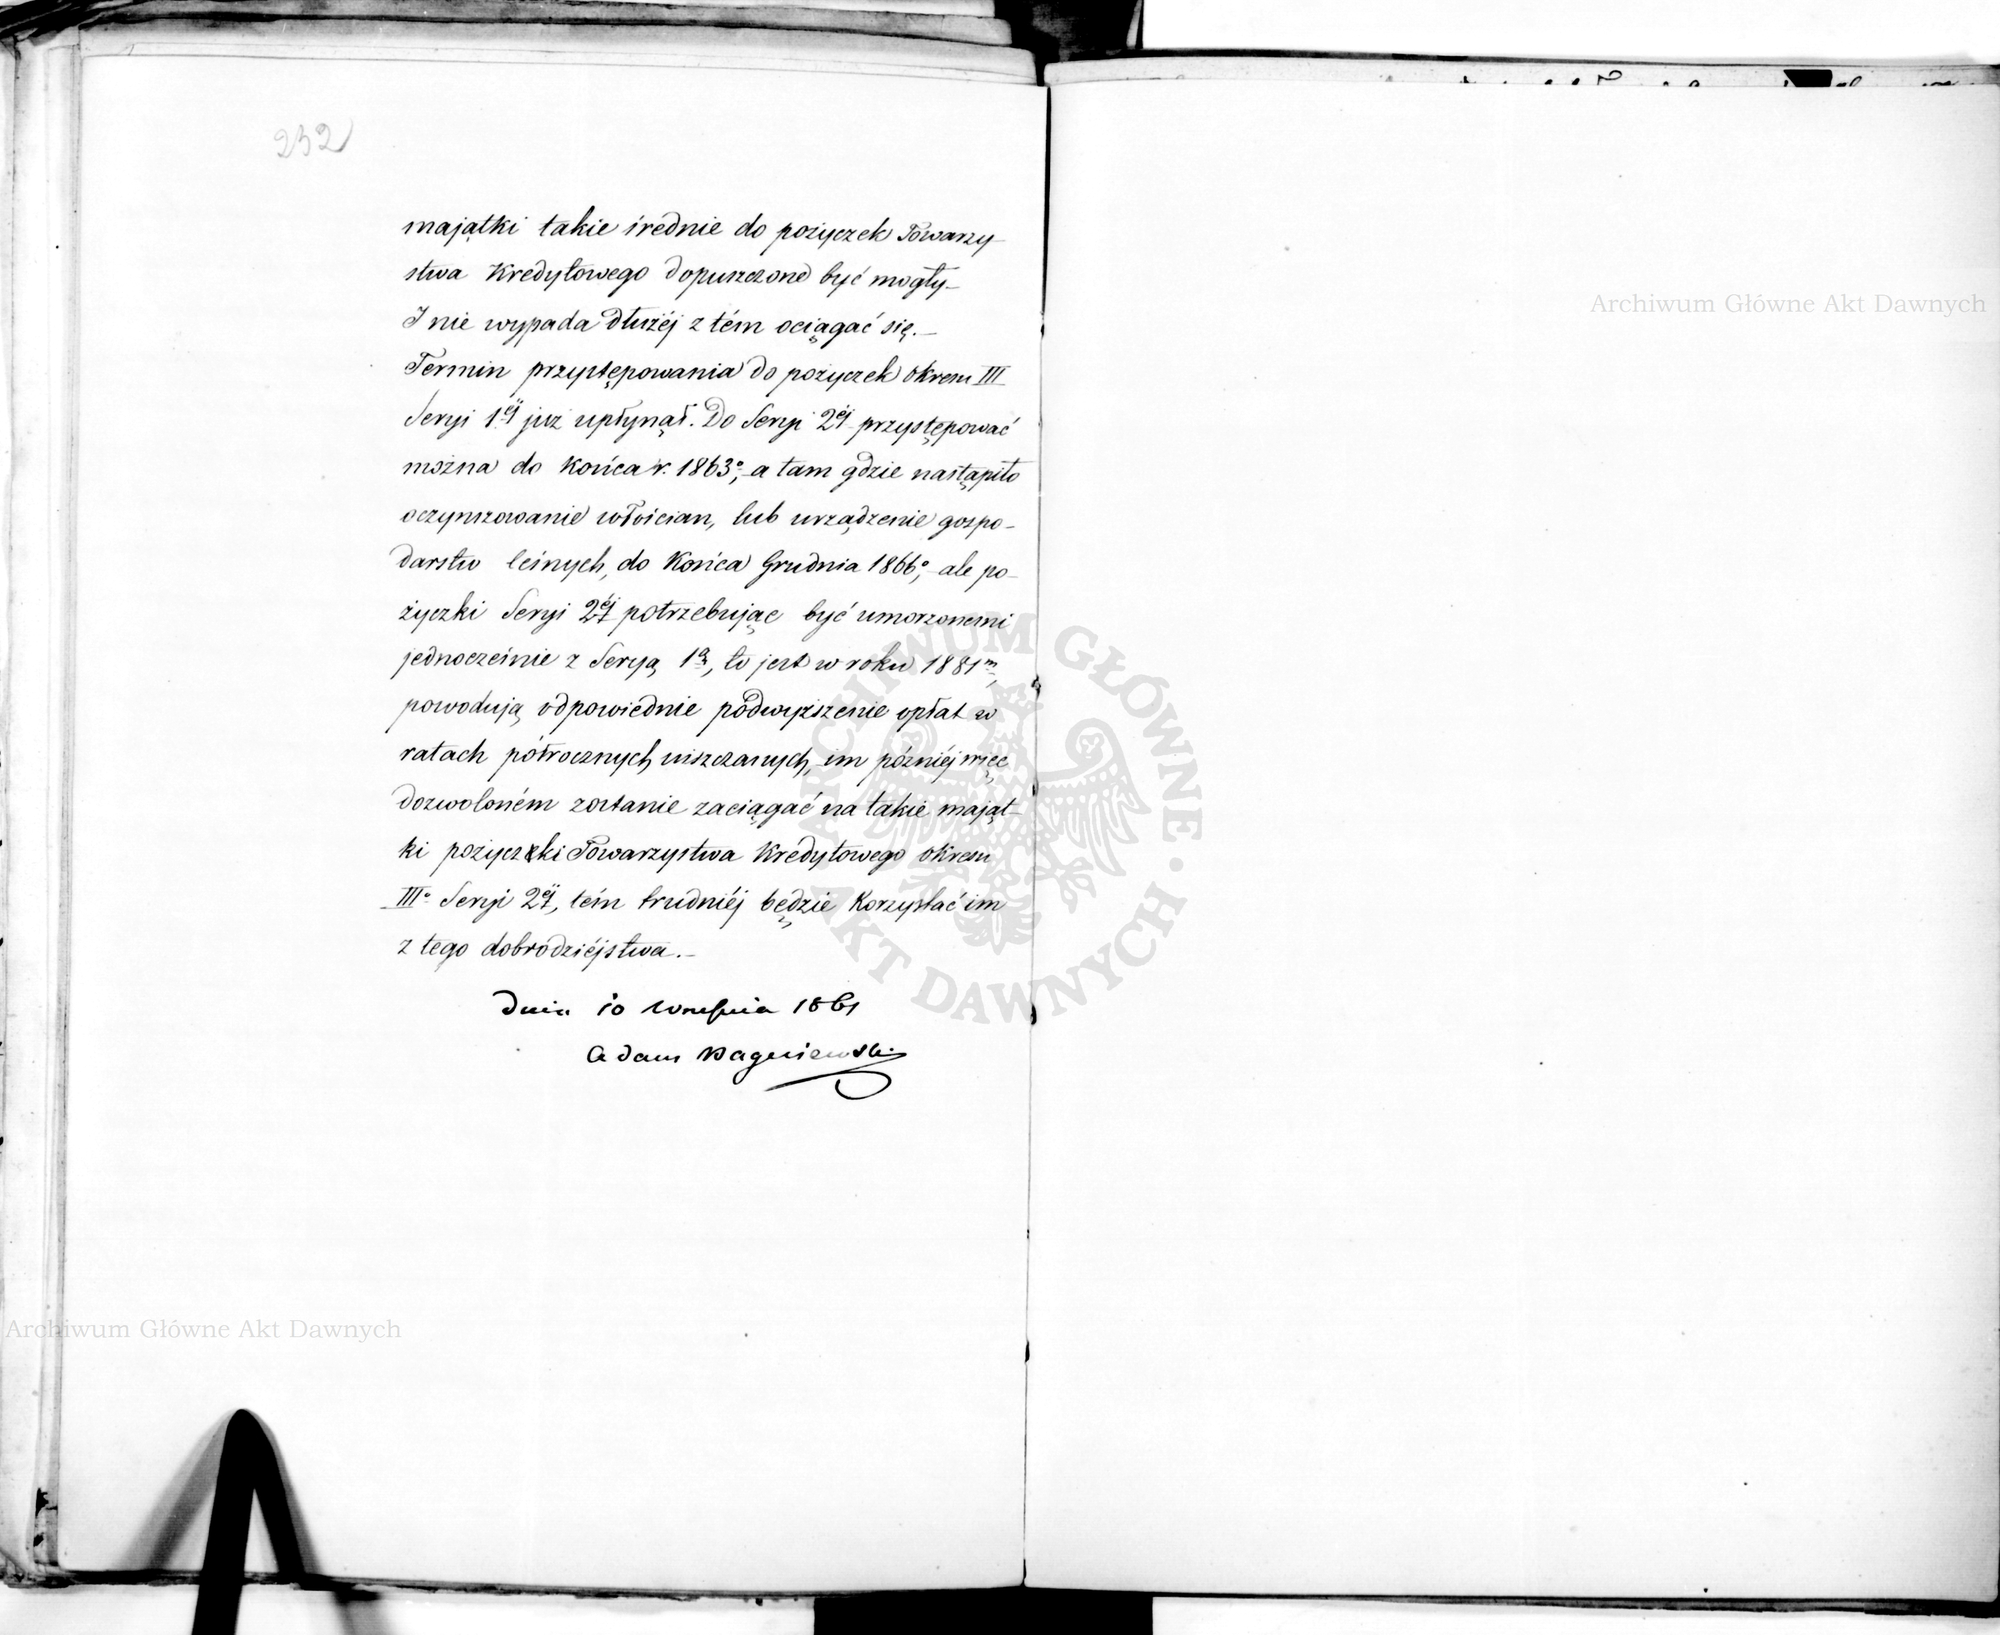 232
majątki takie średnie do pożyczek Towarzy-
stwa Kredytowego dopuszczone być mogły_
I nie wypada dłużéj z tém ociągać się._
Termin przystępowania do pożyczek okresu III
Seryi 1éj już upłynął. Do Seryi 2éj przystępować
można do końca r. 1863º, a tam gdzie nastąpiło
oczynszowanie włościan, lub urządzenie gospo-
darstw leśnych, do końca Grudnia 1866º, ale po-
życzki Seryi 2éj potrzebując być umorzonemi
jednocześnie z Seryą 1ą, to jest w roku 1881m,
powodują odpowiednie podwyższenie opłat w
ratach półrocznych uiszczanych, im późniéj więc
dozwoloném zostanie zaciągać na takie mająt-
ki pożyczki Towarzystwa Kredytowego okresu
IIIº Seryi 2éj, tém trudniéj będzie korzystać im
z tego dobrodziéjstwa._
Dnia 10 Września 1861
Adam
Archiwum Główne Akt Dawnych
Archiwum Główne Akt Dawnych
ARCHIWUM GŁÓWNE AKT DAWNYCH